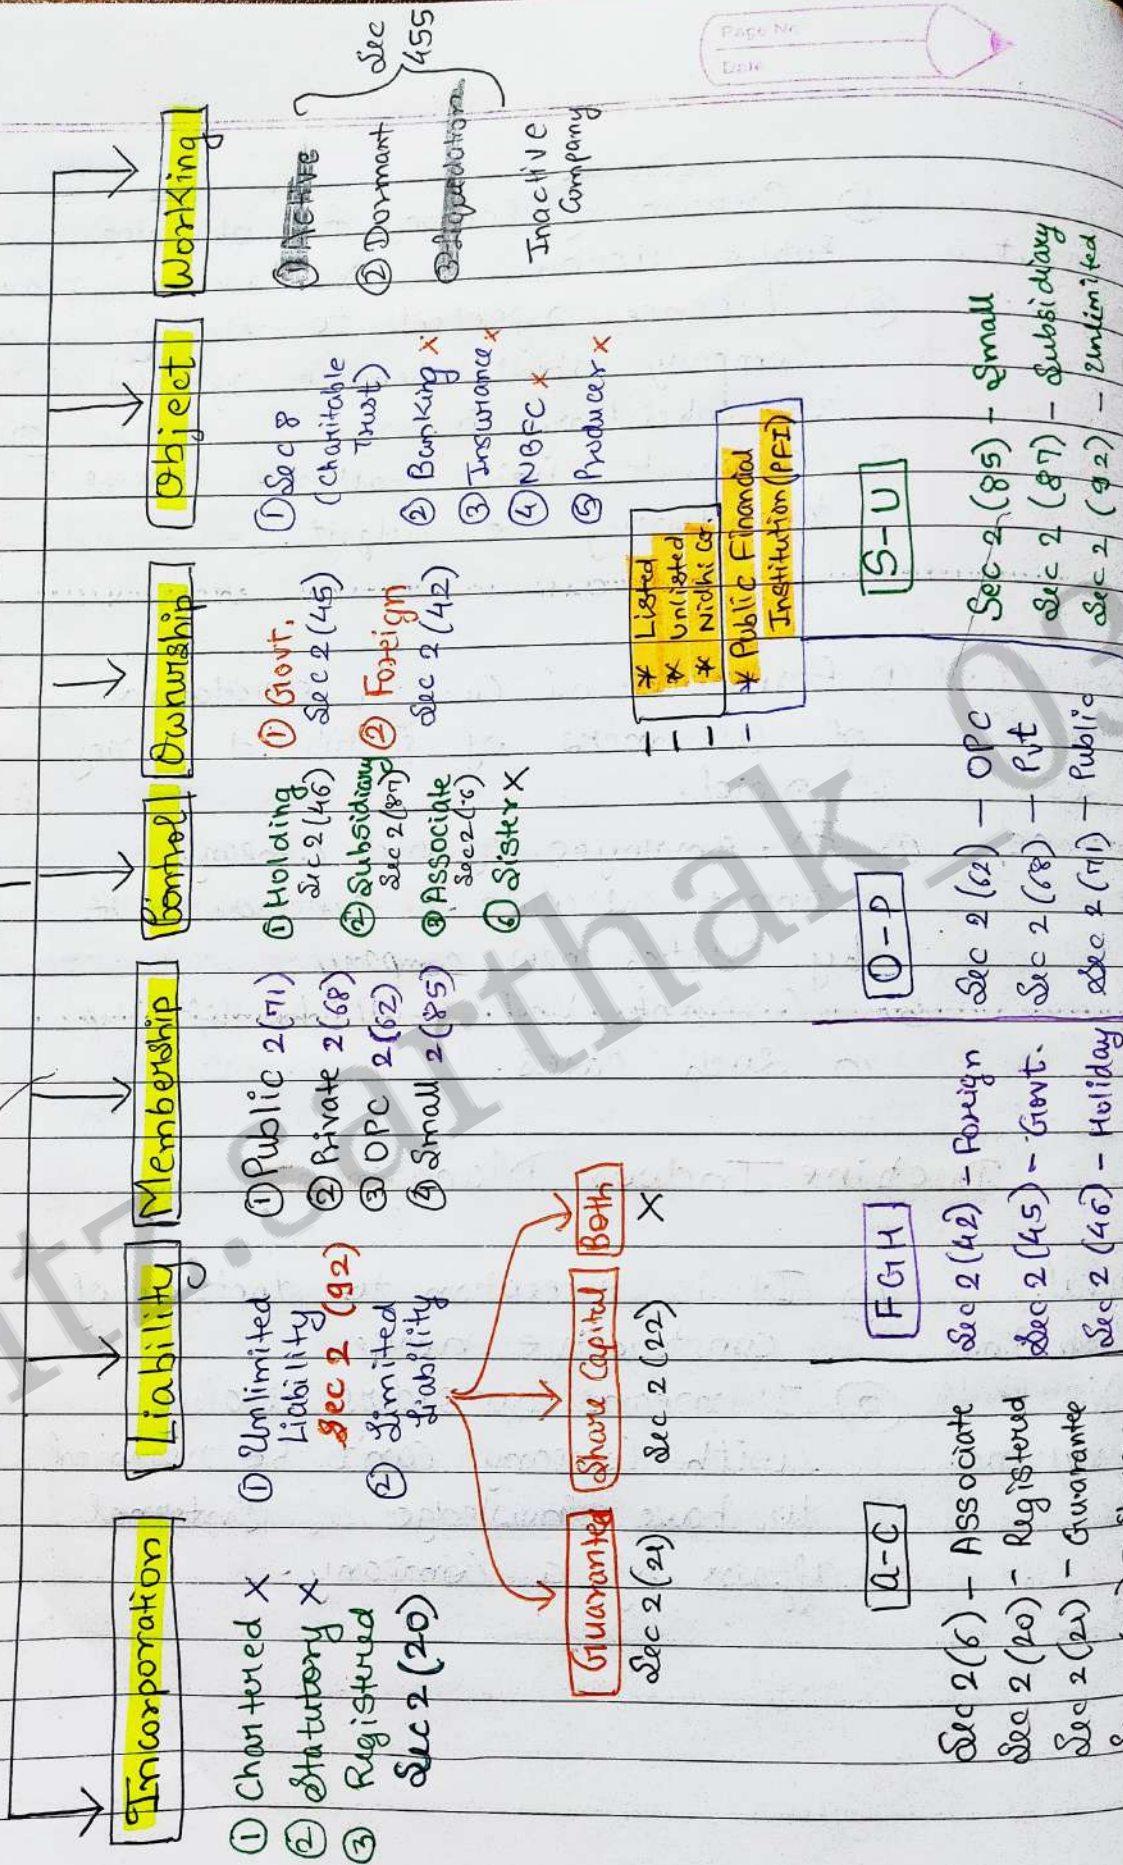 Page No
Date
Incorporation
① Chartered X
② Statutory X
③ Registered
Sec 2 (20)
Liability
① Unlimited
Liability
Sec 2 (92)
② Limited
Liability
Guaranted
Sec 2 (21)
Share Capital
Sec 2 (22)
Both
X
Membership
① Public 2(71)
② Private 2(68)
③ OPC 2(62)
④ Small 2(85)
Control
① Holding
Sec 2(46)
② Subsidiary
Sec 2(87)
③ Associate
Sec 2(6)
⑥ Sister X
Ownership
① Govt.
Sec 2(45)
② Foreign
Sec 2(42)
* Listed
* Unlisted
* Nidhi Co.
* Public Financial
Institution (PFI)
Object
① Sec 8
(Charitable
Trust)
② Banking X
③ Insurance X
④ NBFC X
⑤ Producer X
Working
① Active
② Dormant
③ Liquidation
Sec
455
Inactive
Company
a-C
Sec 2(6) - Associate
Sec 2(20) - Registered
Sec 2(21) - Guarantee
FGH
Sec 2(42) - Foreign
Sec 2(45) - Govt.
Sec 2(46) - Holiday
O-P
Sec 2(62) - OPC
Sec 2(68) - Pvt
Sec 2(71) - Public
S-U
Sec 2(85) - Small
Sec 2(87) - Subsidiary
Sec 2(92) - Unlimited